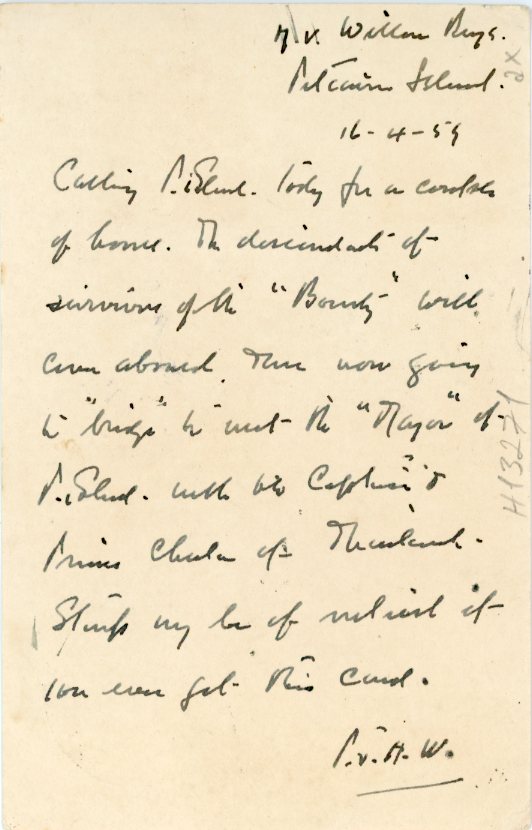 M V Willem Ruys.
Pitcairn Island.
16-4-59
Calling P. Island. Today for a couple
of hours. The descendants of
survivors of the "Bounty" will
come aboard. Am now going
to "bridge" to meet the "Mayor" of
P. Island. with the Captain &
Prince Chula of Thailand.
Stamps may be of interest if
you ever get this card.
P.v.H.W.
2x
H13271